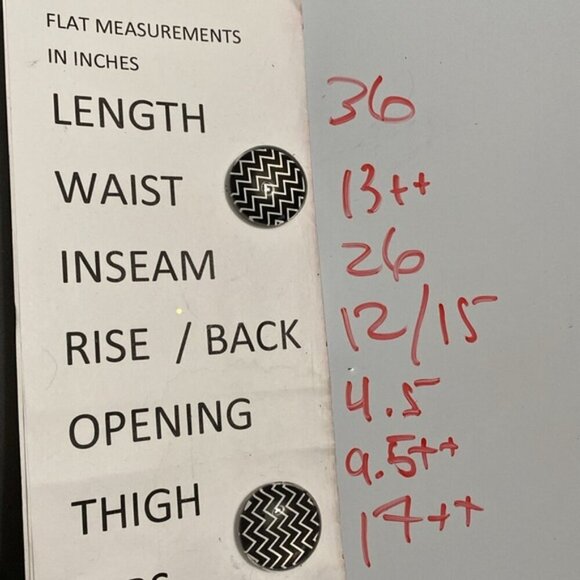 FLAT MEASUREMENTS
IN INCHES
LENGTH 36
WAIST 13++
INSEAM 26
RISE / BACK 12/15
OPENING 4.5
THIGH 9.5++
14++